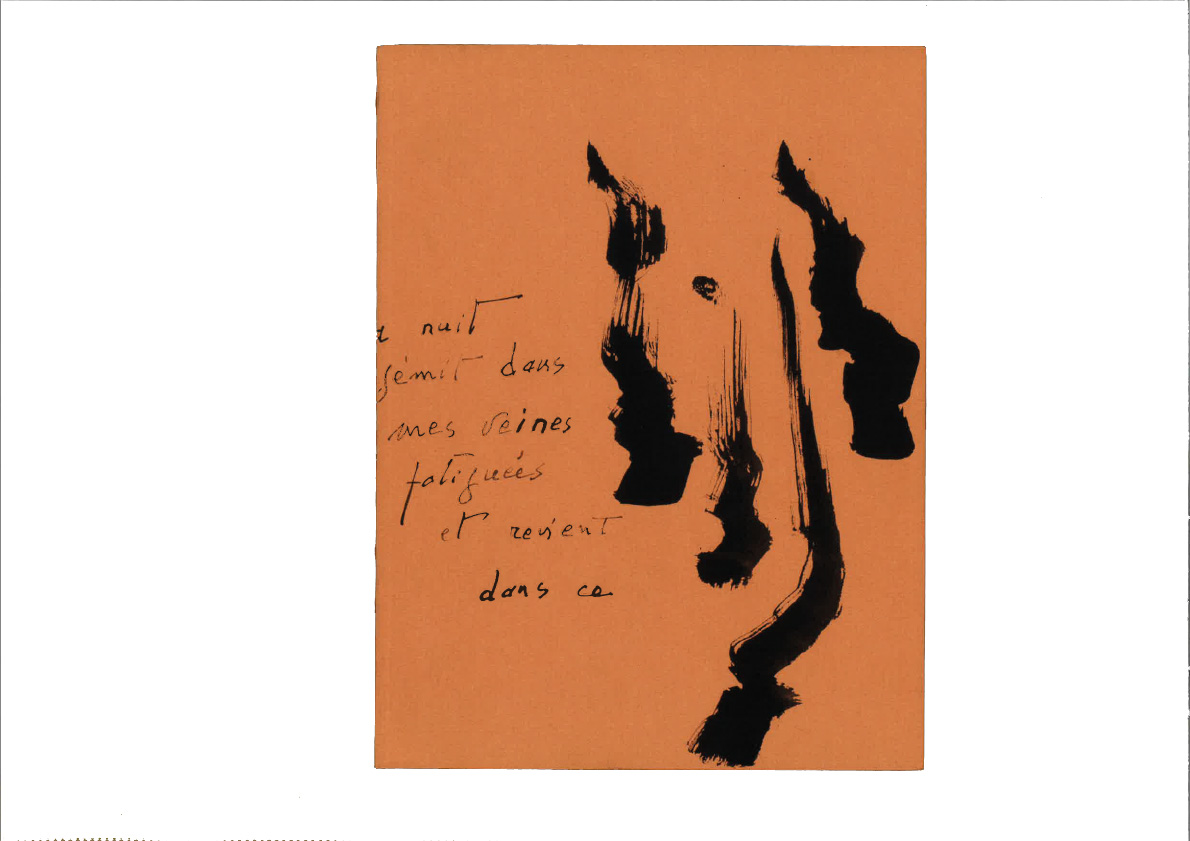 a nuit
gémit dans
mes veines
fatiguées
et revient
dans ce